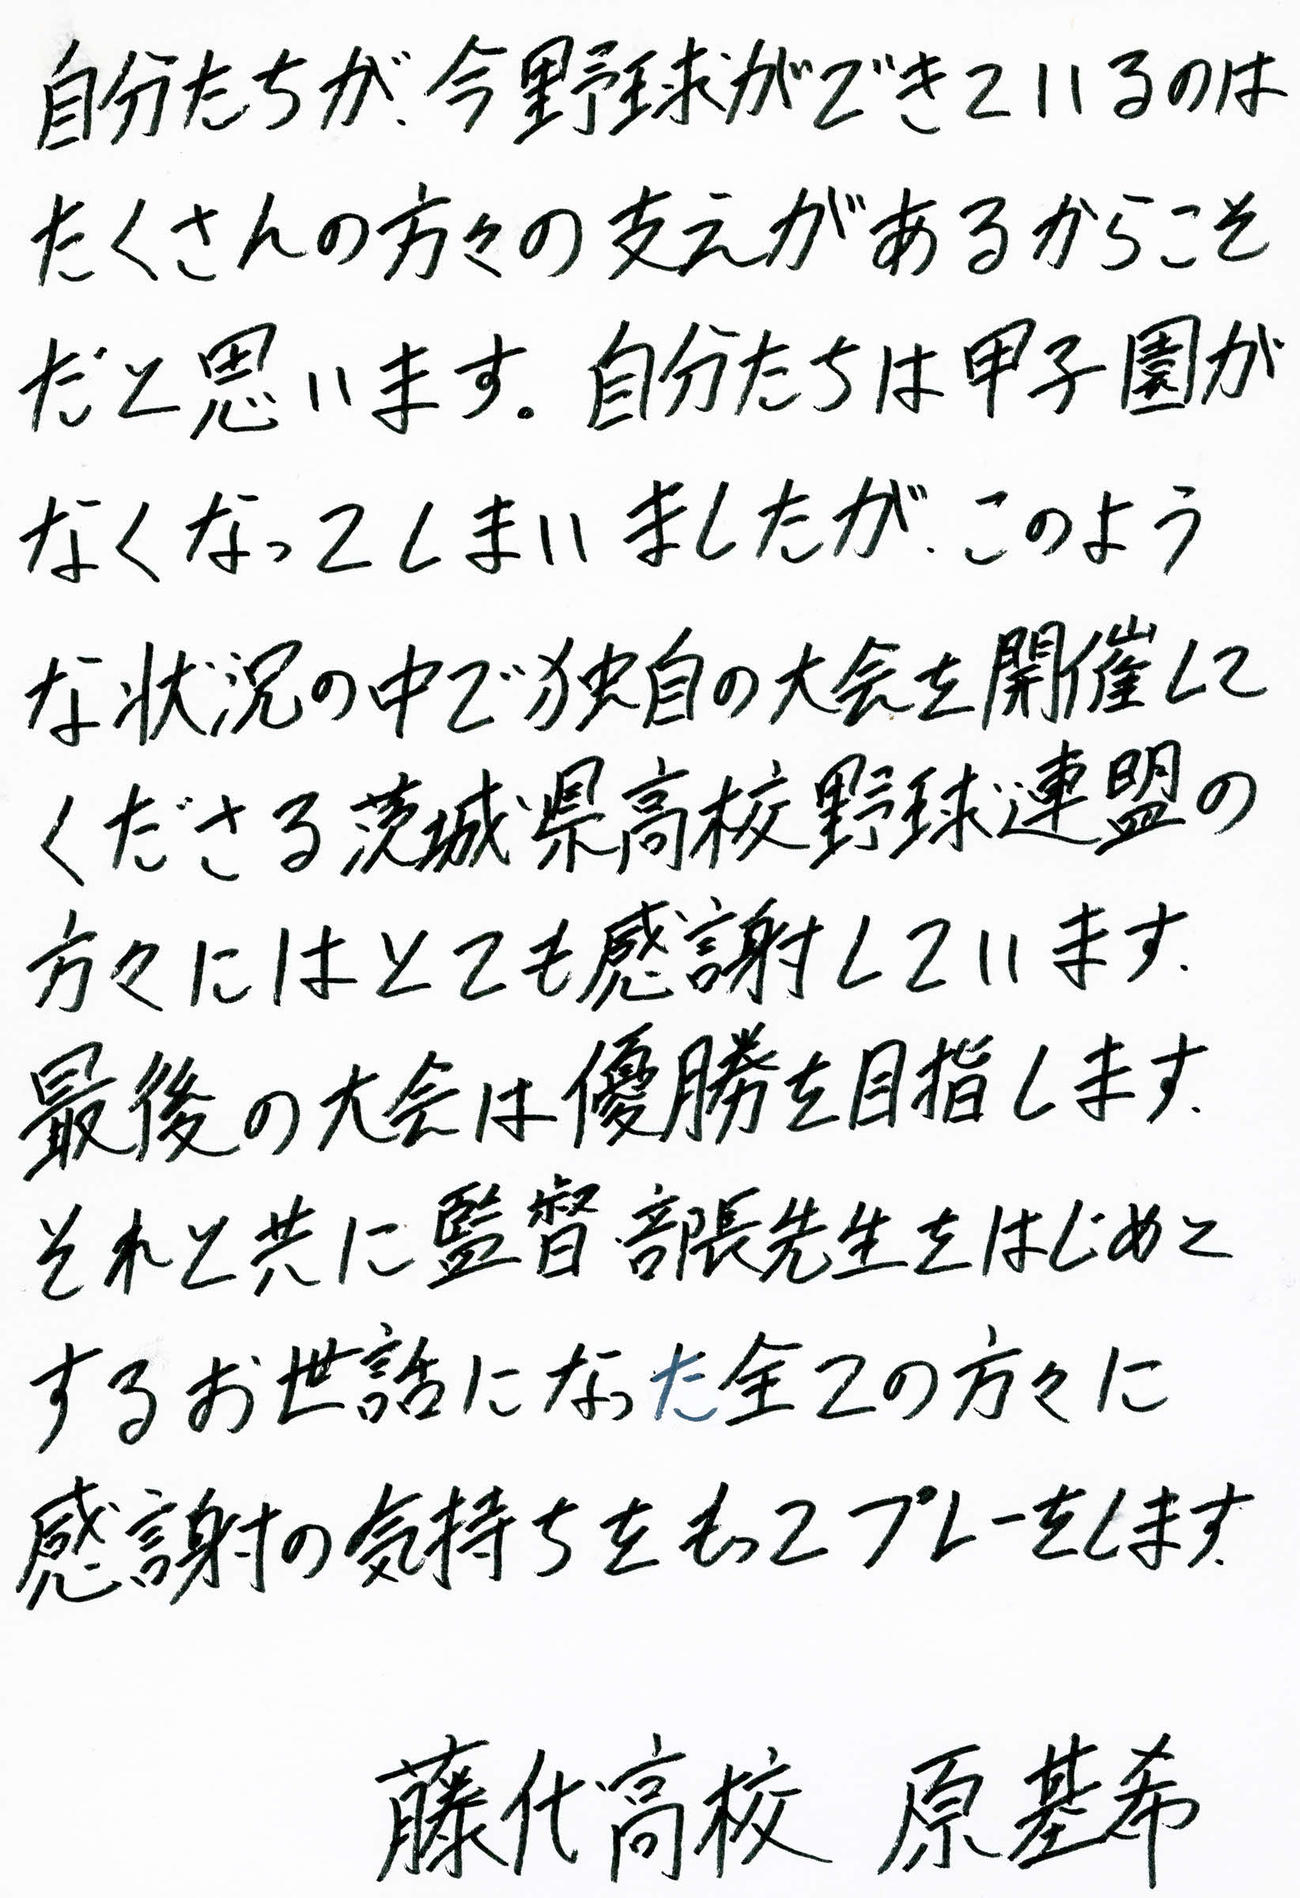 自分たちが、今野球ができているのは
たくさんの方々の支えがあるからこそ
だと思います。自分たちは甲子園が
なくなってしまいましたが、このよう
な状況の中で独自の大会を開催して
くださる茨城県高校野球連盟の
方々にはとても感謝しています。
最後の大会は優勝を目指します。
それと共に監督部長先生をはじめと
するお世話になった全ての方々に
感謝の気持ちをもってプレーをします。
藤代高校 原基希